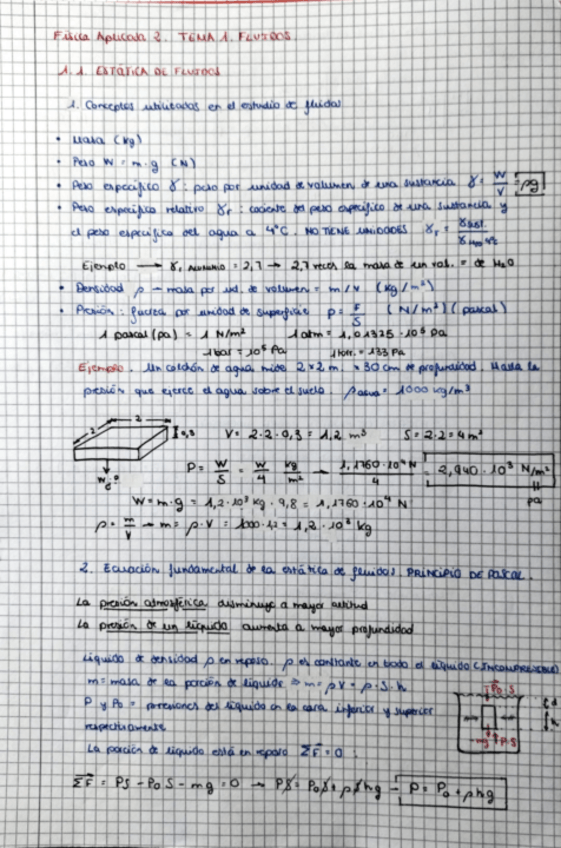 Física Aplicada 2. TEMA 1. FLUIDOS.
1.1. ESTÁTICA DE FLUIDOS
1. Conceptos utilizados en el estudio de fluidos
• Masa (kg)
• Peso W = m·g (N)
• Peso específico γ: peso por unidad de volumen de una sustancia γ = W/V = ρg
• Peso específico relativo γr: cociente del peso específico de una sustancia y
el peso específico del agua a 4ºC. NO TIENE UNIDADES γr = γsust./γH2O 4ºC
Ejemplo → γr ALUMINIO = 2,7 → 2,7 veces la masa de un vol. = de H2O
• Densidad ρ → masa por ud. de volumen = m/V (kg/m³)
• Presión: fuerza por unidad de superficie p = F/S (N/m²) (pascal)
1 pascal (pa) = 1 N/m² 1 atm = 1,01325·10⁵ Pa
1 bar = 10⁵ Pa 1 torr. = 133 Pa
Ejemplo. Un colchón de agua mide 2×2 m. × 30 cm de profundidad. Halla la
presión que ejerce el agua sobre el suelo. ρagua = 1000 kg/m³
2 2 0,3 V = 2·2·0,3 = 1,2 m³ S = 2·2 = 4 m²
P = W/S = W/4 kg/m² → 1,1760·10⁴ N/4 = 2,940·10³ N/m²
Pa
W = m·g = 1,2·10³ kg · 9,8 = 1,1760·10⁴ N
ρ = m/V → m = ρ·V = 1000·1,2 = 1,2·10³ kg
2. Ecuación fundamental de la estática de fluidos. PRINCIPIO DE PASCAL.
La presión atmosférica disminuye a mayor altitud
La presión de un líquido aumenta a mayor profundidad
Líquido de densidad ρ en reposo. ρ es constante en todo el líquido (INCOMPRESIBLE)
m = masa de la porción de líquido ⇒ m = ρV = ρ·S·h
P y P₀ = presiones del líquido en la cara inferior y superior
respectivamente
La porción de líquido está en reposo ΣF = 0:
P₀·S
d
h
-mg P·S
ΣF = PS - P₀S - mg = 0 → PS = P₀S + ρShg → P = P₀ + ρhg